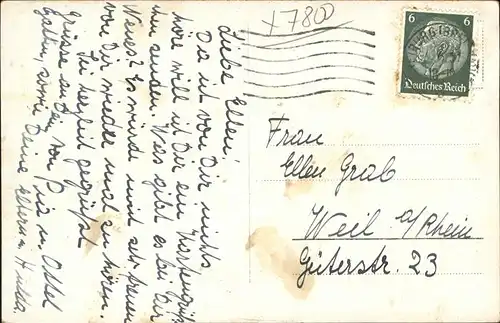 x 7800
6 6
Deutsches Reich
Liebe Ellen,
Da ich von Dir nichts
höre will ich Dir ein
senden. Was gibt es bei Dir
Neues? Es würde mich sehr freuen
von Dir wieder mal zu hören.
Sei herzlich gegrüßt
Grüsse an von Pia u. Ottel
sowie Deine Eltern u.
Frau
Ellen Grab
Weil a/Rhein
Güterstr. 23